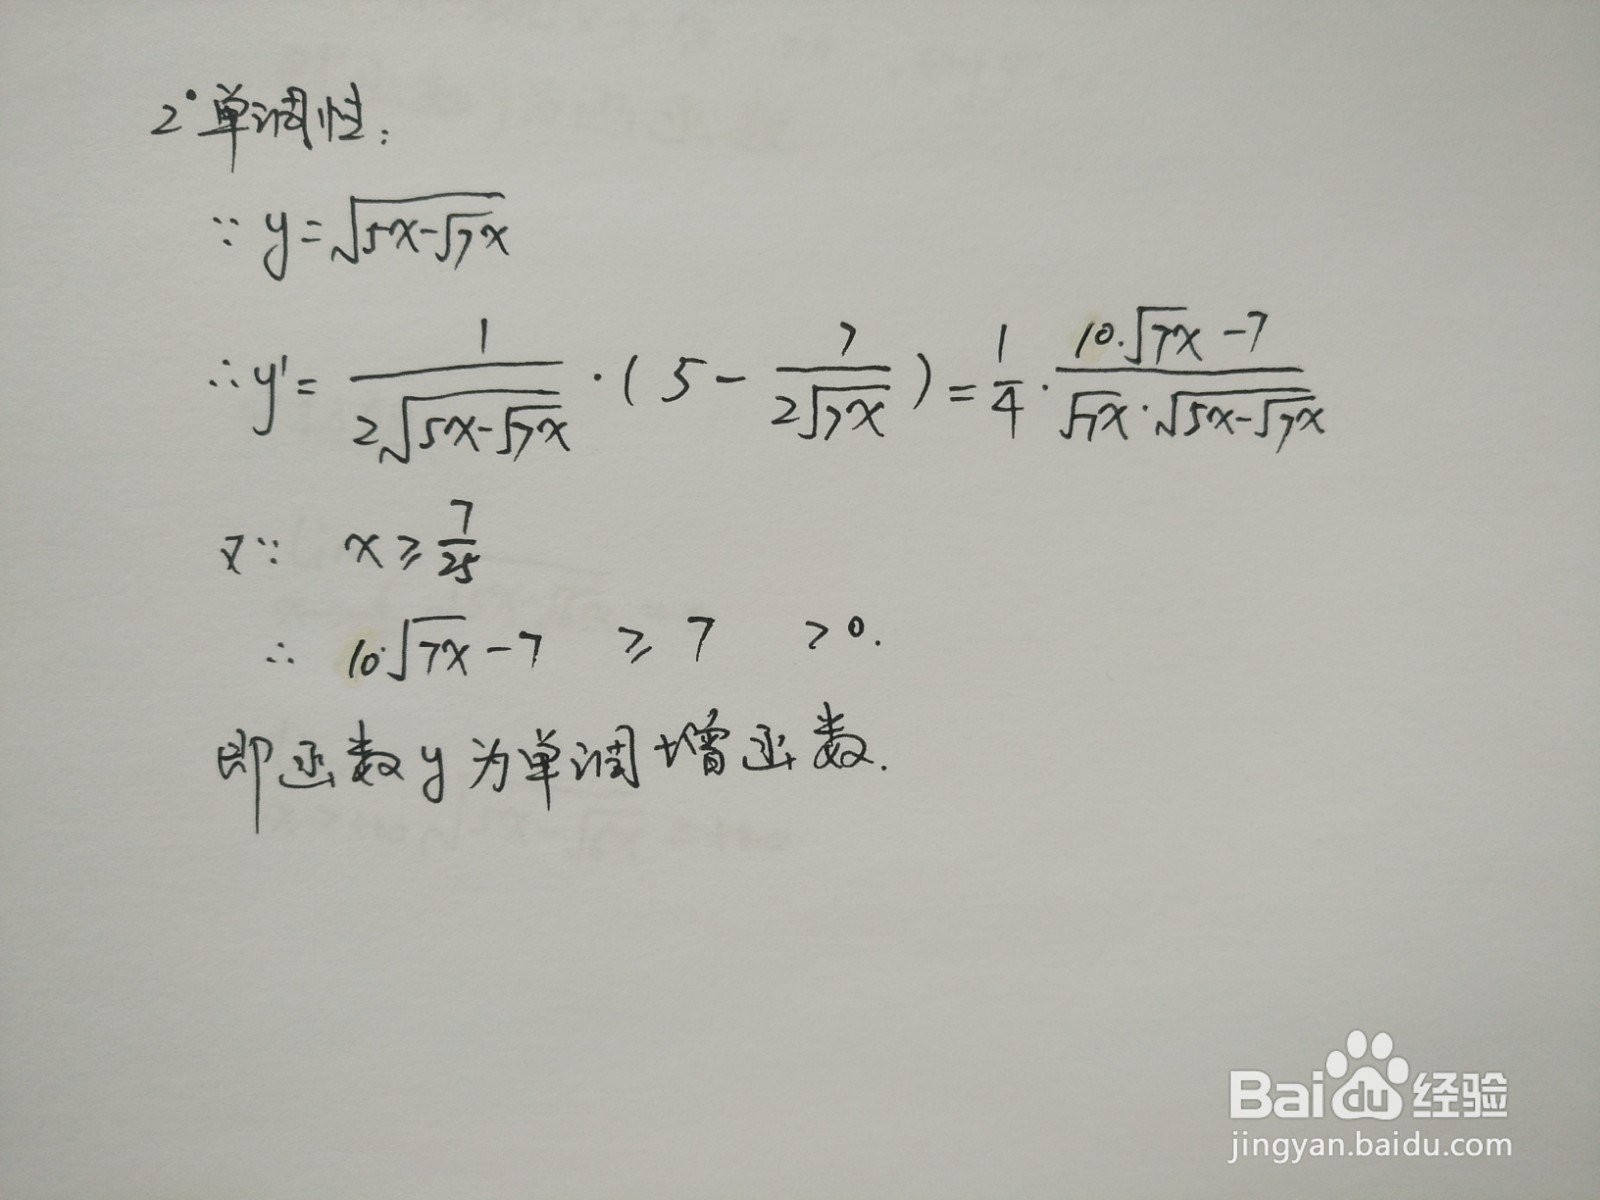 2°单调性:
∵ y=√(5x-√(7x))
∴ y'= 1/(2√(5x-√(7x))) ·(5 - 7/(2√(7x))) = 1/4 · (10·√(7x) -7)/(√(7x)·√(5x-√(7x)))
又∵ x≥7/25
∴ 10·√(7x) -7 ≥ 7 >0.
即函数y为单调增函数.
Baidu经验
jingyan.baidu.com